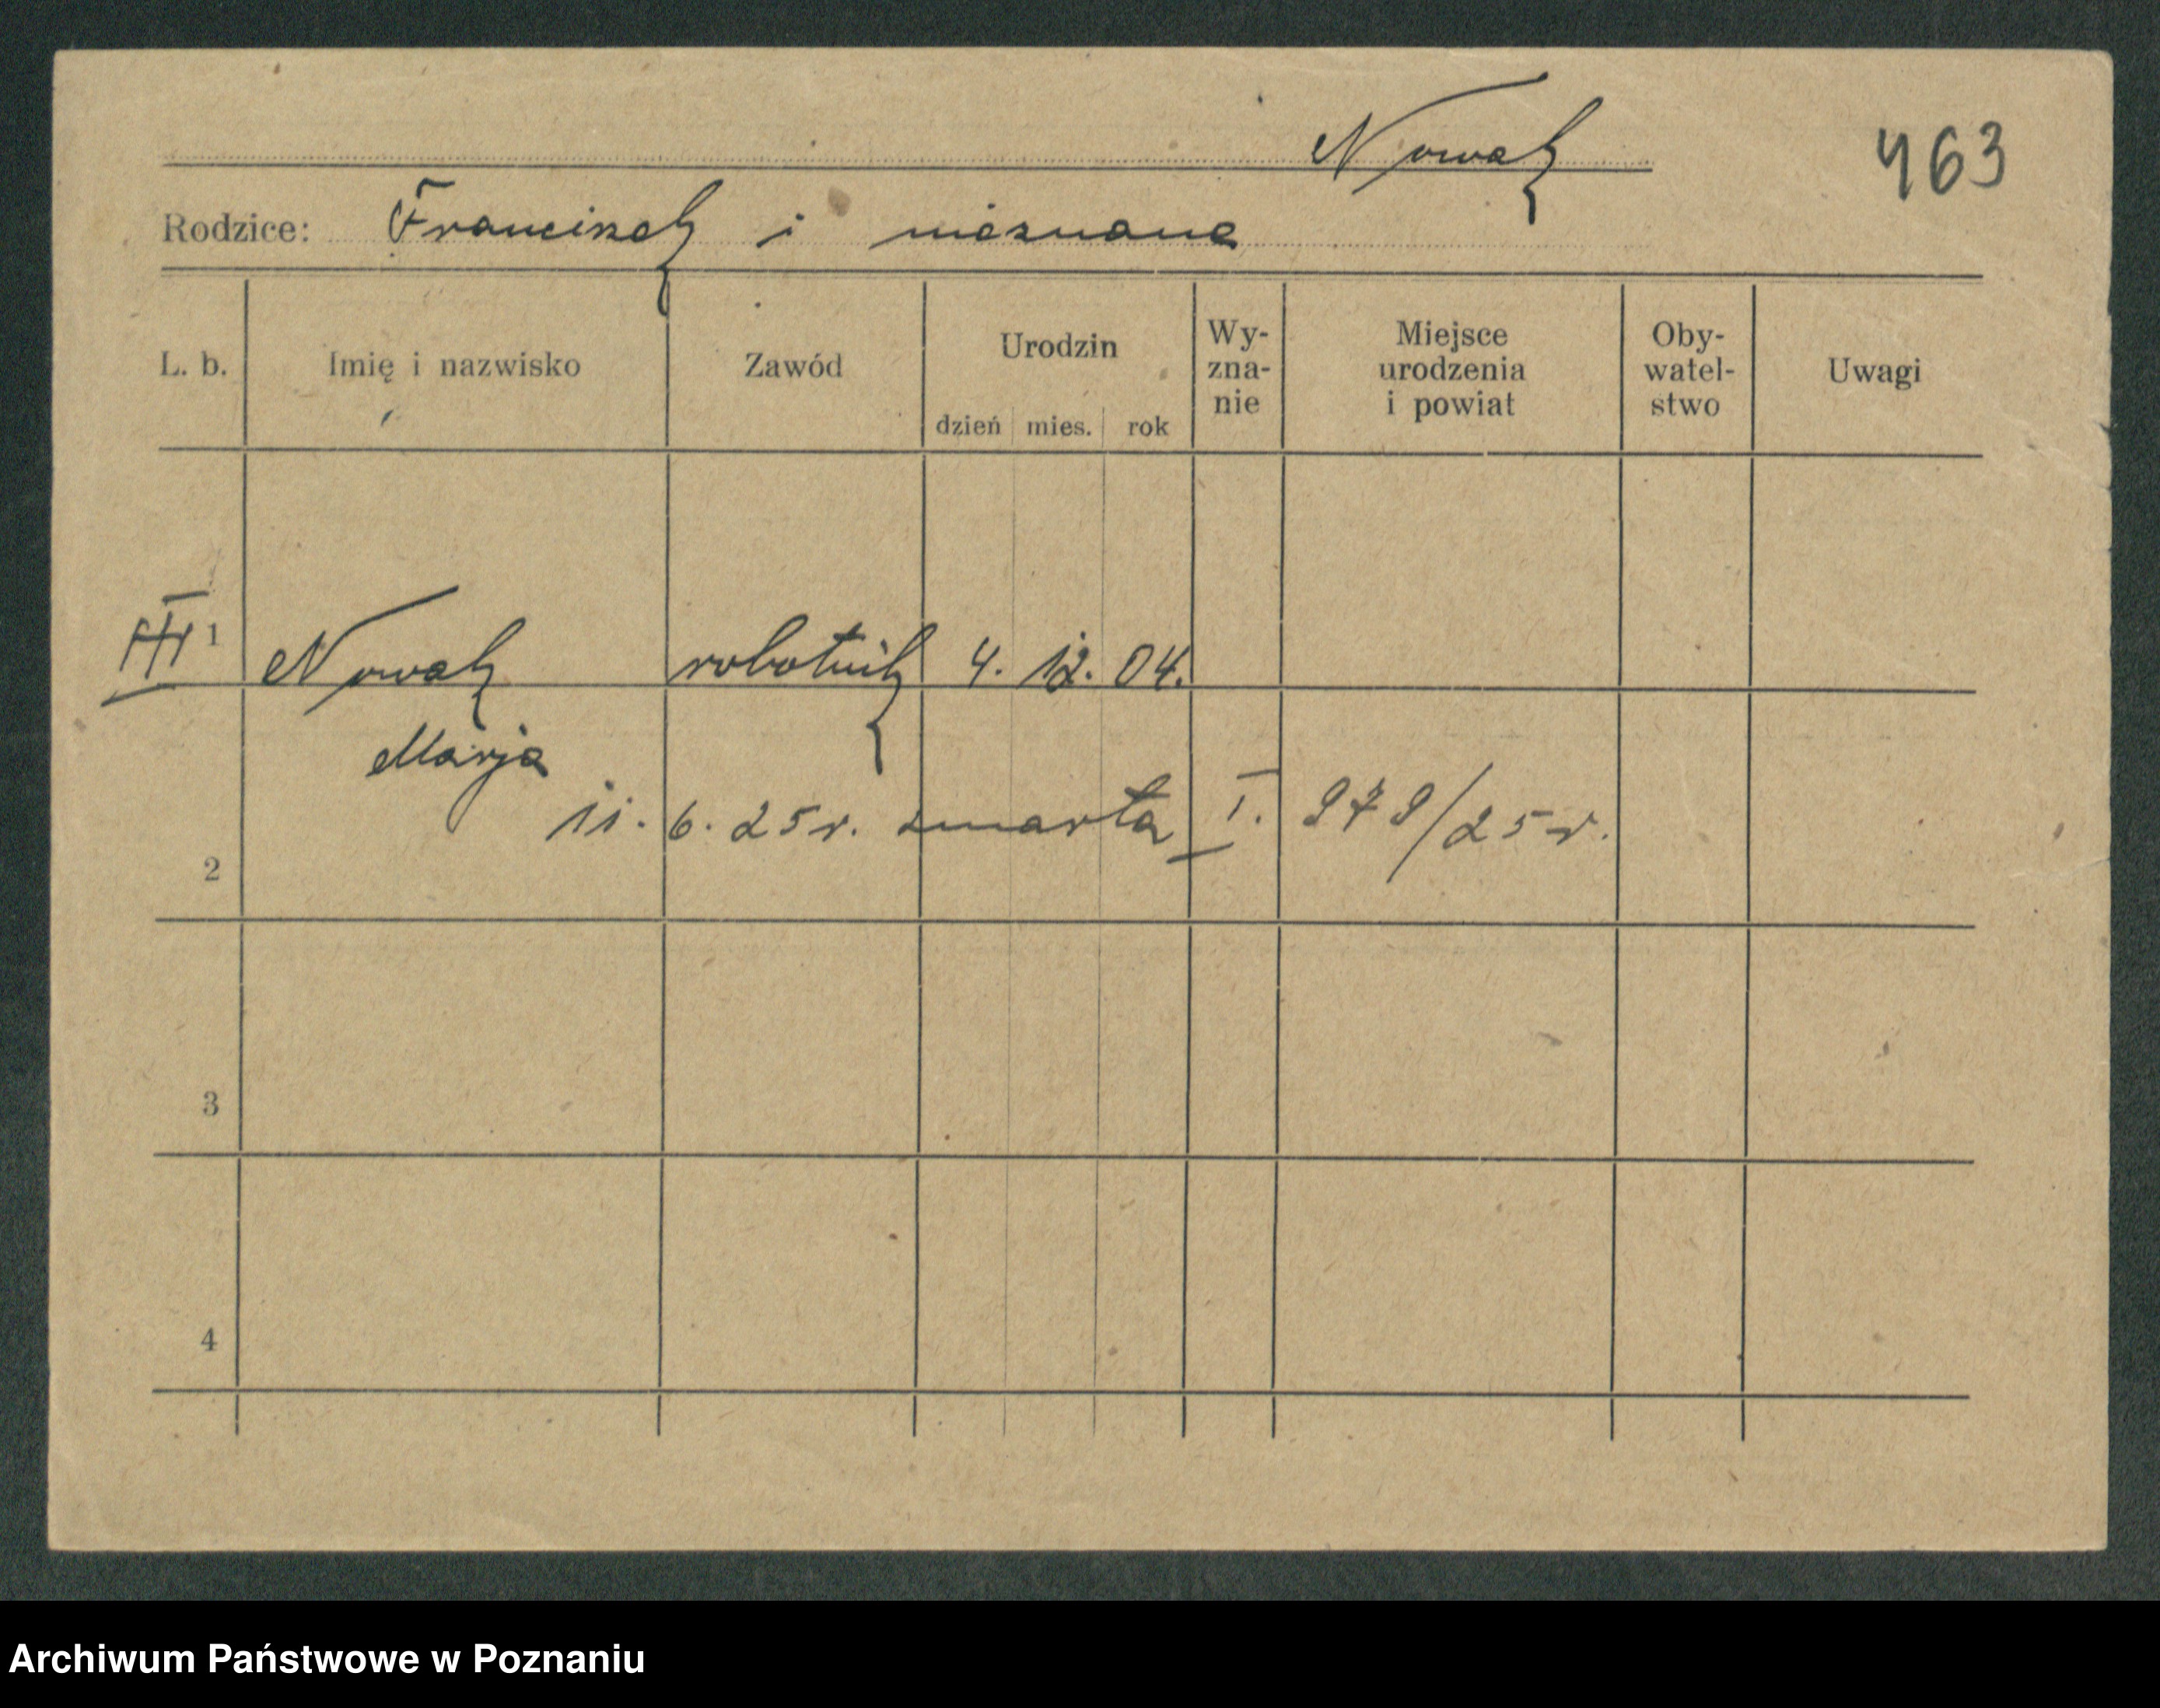 Nowak
463
Rodzice: Franciszek i nieznana
L. b. Imię i nazwisko Zawód Urodzin dzień mies. rok Wy-zna-nie Miejsce urodzenia i powiat Oby-watel-stwo Uwagi
III 1 Nowak robotnik 4. 12. 04.
Marja
11. 6. 25 r. zmarła I. 979/25 r.
2
3
4
Archiwum Państwowe w Poznaniu